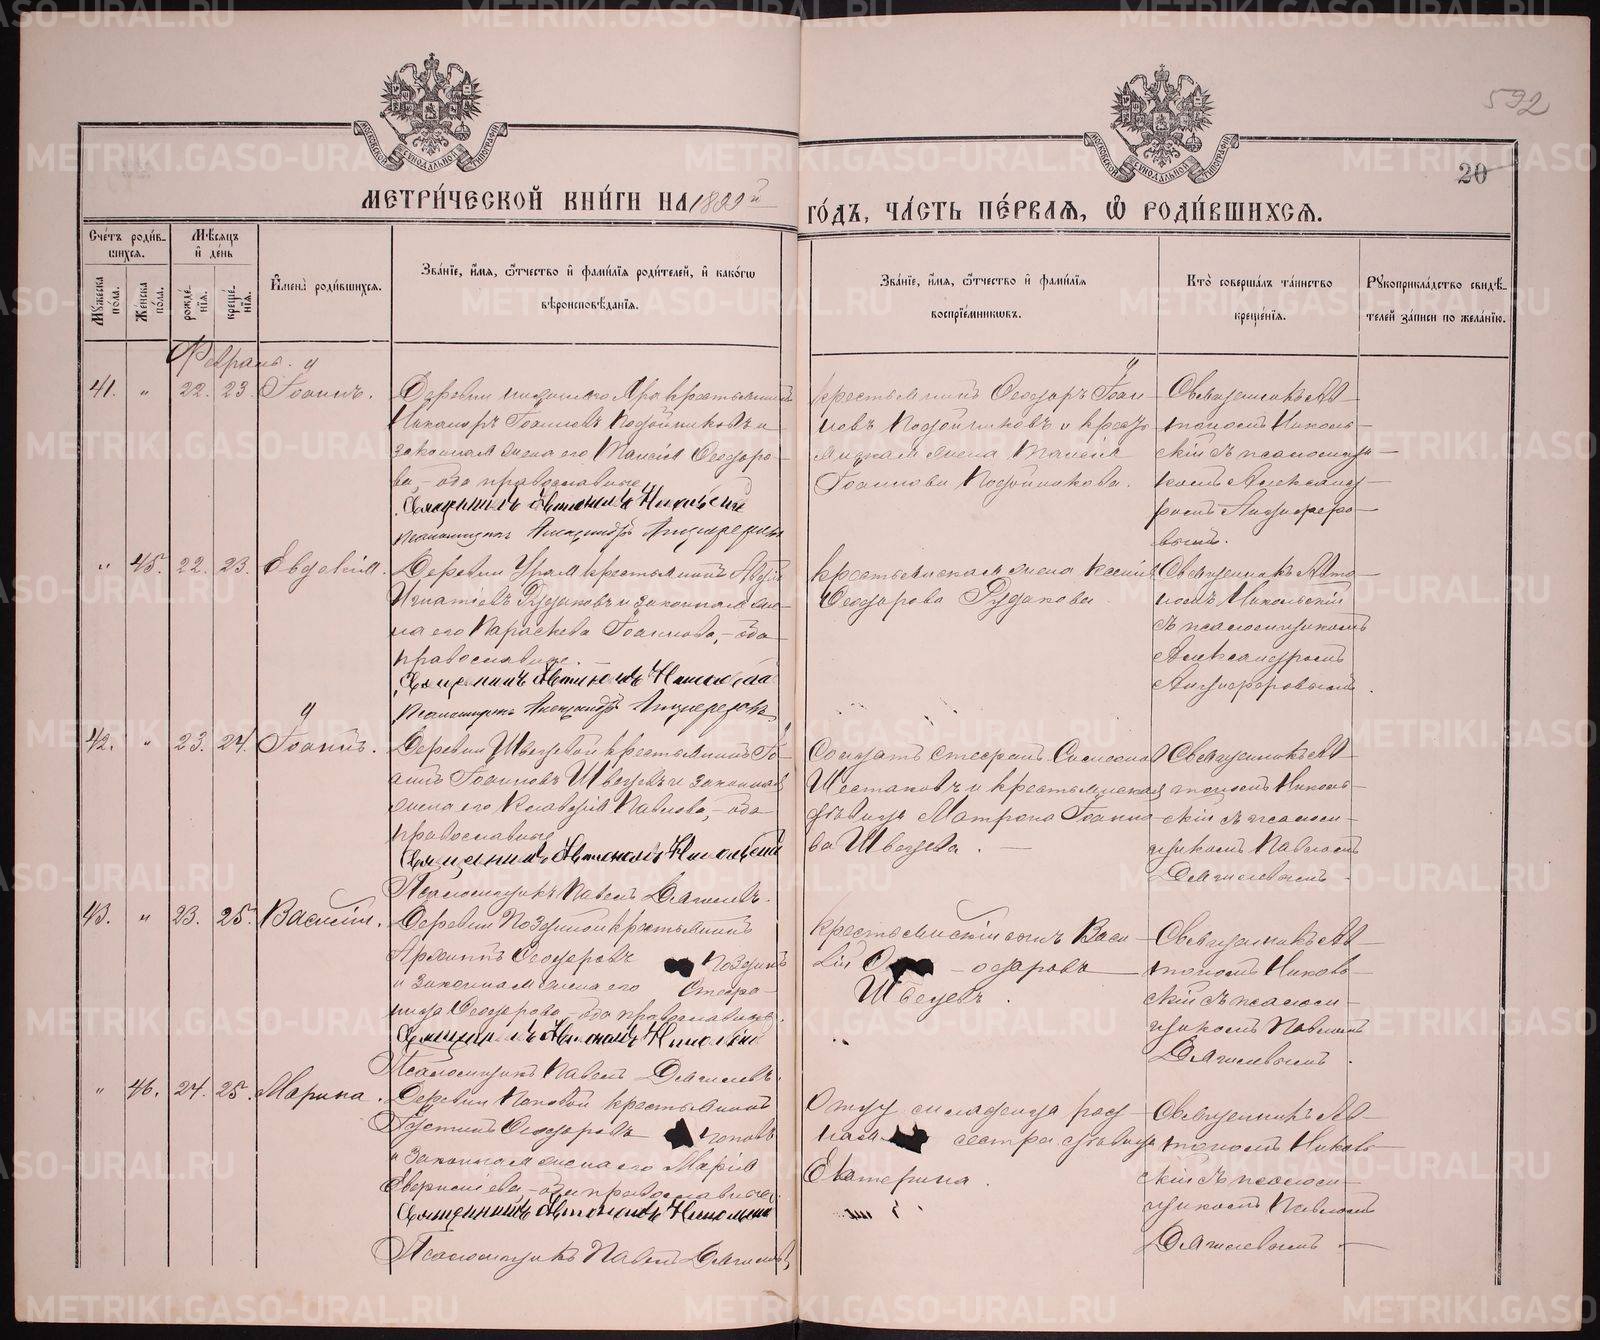 592
20
МЕТРИ́ЧЕСКОЙ КНИ́ГИ НА 1899й
ГО́ДЪ, ЧА́СТЬ ПЕ́РВАЯ, Ѡ РОДИ́ВШИХСЯ.
Сче́тъ роди́в-
шихся.
Му́жеска
по́ла.
Же́нска
по́ла.
Мѣ́сяцъ
и де́нь
рожде́-
нія.
креще́-
нія.
Имена̀ роди́вшихся.
Зва́ніе, и́мя, ѻ҆́тчество и фами́лія роди́телей, и како́гѡ
вѣроисповѣ́данія.
Зва́ніе, и́мя, ѻ҆́тчество и фами́лія
воспріе́мникѡвъ.
Кто̀ соверша́лъ та́инство
креще́нія.
Рукоприкла́дство свидѣ́-
телей за́писи по жела́нію.
Февраль.
41. " 22. 23. Іоаннъ.
Деревни крестьянинъ
Никаноръ Іоанновъ Подойниковъ и
законная жена его Таисія Ѳеодоро-
ва, – оба православные.
Священникъ Автономъ Никольскій
Псаломщикъ Александръ Анциферовъ
крестьянинъ Ѳеодоръ Іоан-
новъ Подойниковъ и кресть-
янская жена Таисія
Іоаннова Подойникова.
Священникъ Ав-
тономъ Николь-
скій съ псаломщи-
комъ Александ-
ромъ Анциферо-
вымъ.
" 45. 22. 23. Евдокія.
Деревни крестьянинъ
Игнатіевъ Рудаковъ и законная же-
на его Параскева Іоаннова, – оба
православные.
Священникъ Автономъ Никольскій
Псаломщикъ Александръ Анциферовъ
Крестьянская жена Ксенія
Ѳеодорова Рудакова.
Священникъ Авто-
номъ Никольскій
съ псаломщикомъ
Александромъ
Анциферовымъ.
42. " 23. 24. Іоаннъ.
Деревни Шведевой крестьянинъ Іо-
аннъ Іоанновъ Шведевъ и законная
жена его Клавдія Павлова, – оба
православные
Священникъ Автономъ Никольскій
Псаломщикъ Павелъ Дягилевъ.
Солдатъ Стефанъ
Шестаковъ и крестьянская
дѣвица Матрона Іоанно-
ва Шведева. –
Священникъ Ав-
тономъ Николь-
скій съ псалом-
щикомъ Павломъ
Дягилевымъ.
43. " 23. 25. Василій.
Деревни Поздиной крестьянинъ
Ѳеодоровъ Поздинъ
и законная жена его Стефа-
нида Ѳеодорова, – оба православные.
Священникъ Автономъ Никольскій
Псаломщикъ Павелъ Дягилевъ.
Крестьянскій сынъ Васи-
лій
Шведевъ.
Священникъ Ав-
тономъ Николь-
скій съ псалом-
щикомъ Павломъ
Дягилевымъ.
" 46. 24. 25. Марина.
Деревни Поповой крестьянинъ
Іустинъ Ѳеодоровъ Поповъ
и законная жена его Марія
православные.
Священникъ Автономъ Никольскій
Псаломщикъ Павелъ Дягилевъ.
Отцу младенца род-
ная сестра дѣвица
Екатерина.
Священникъ Ав-
тономъ Николь-
скій съ псалом-
щикомъ Павломъ
Дягилевымъ. –
METRIKI.GASO-URAL.RU